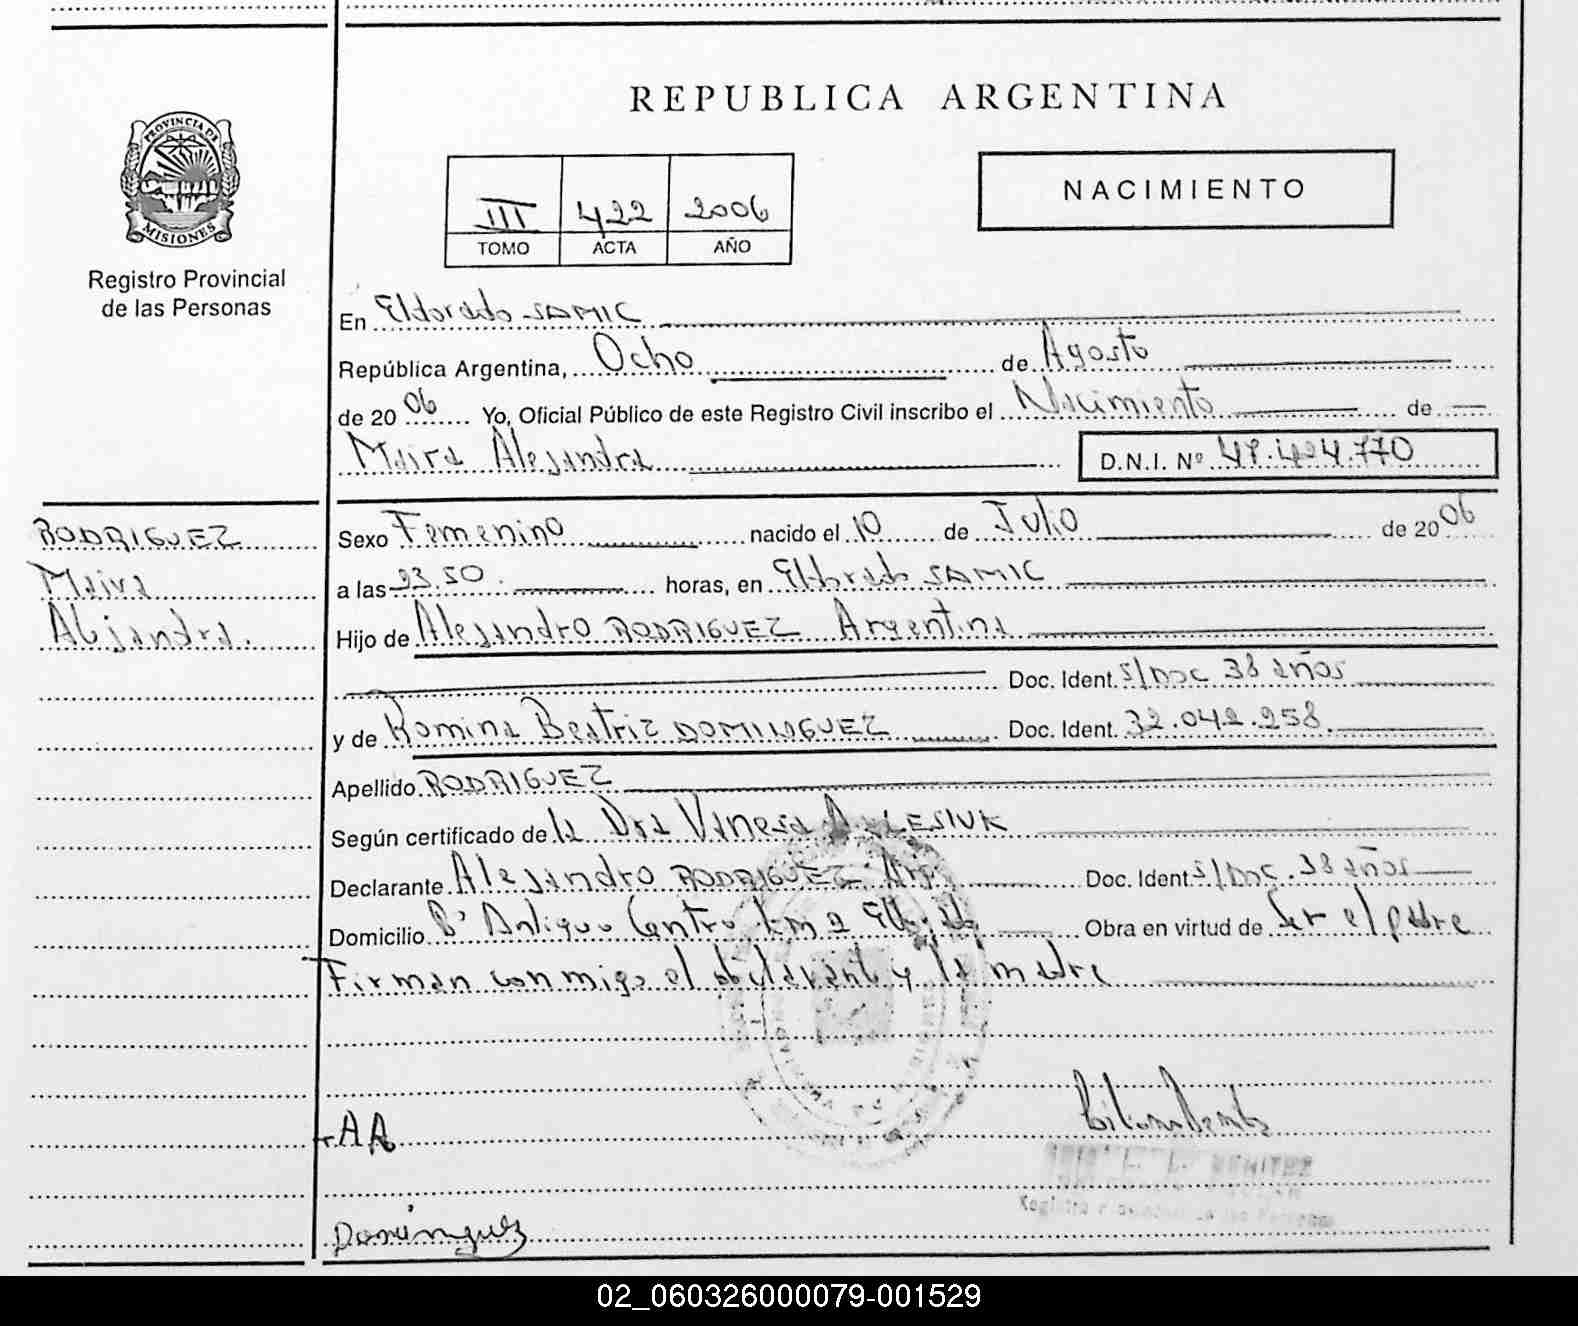 REPUBLICA ARGENTINA
PROVINCIA DE
MISIONES
Registro Provincial
de las Personas
NACIMIENTO
III 422 2006
TOMO ACTA AÑO
En Eldorado SAMIC
República Argentina, Ocho de Agosto
de 2006 Yo, Oficial Público de este Registro Civil inscribo el Nacimiento de
Maira Alejandra D.N.I. Nº 47.424.770
RODRIGUEZ
Maira
Alejandra.
Sexo Femenino nacido el 10 de Julio de 2006
a las 23.50. horas, en Eldorado SAMIC
Hijo de Alejandro RODRIGUEZ Argentina
Doc. Ident. S/Doc 38 años
y de Romina Beatriz DOMINGUEZ Doc. Ident. 32.042.258.
Apellido RODRIGUEZ
Según certificado de la Dra Vanesa
Declarante Alejandro RODRIGUEZ Arg Doc. Ident S/Doc. 38 años
Domicilio Bº Antiguo Centro km 2 Obra en virtud de Ser el padre
Firman conmigo el declarante y la madre
Dominguez
02_060326000079-001529